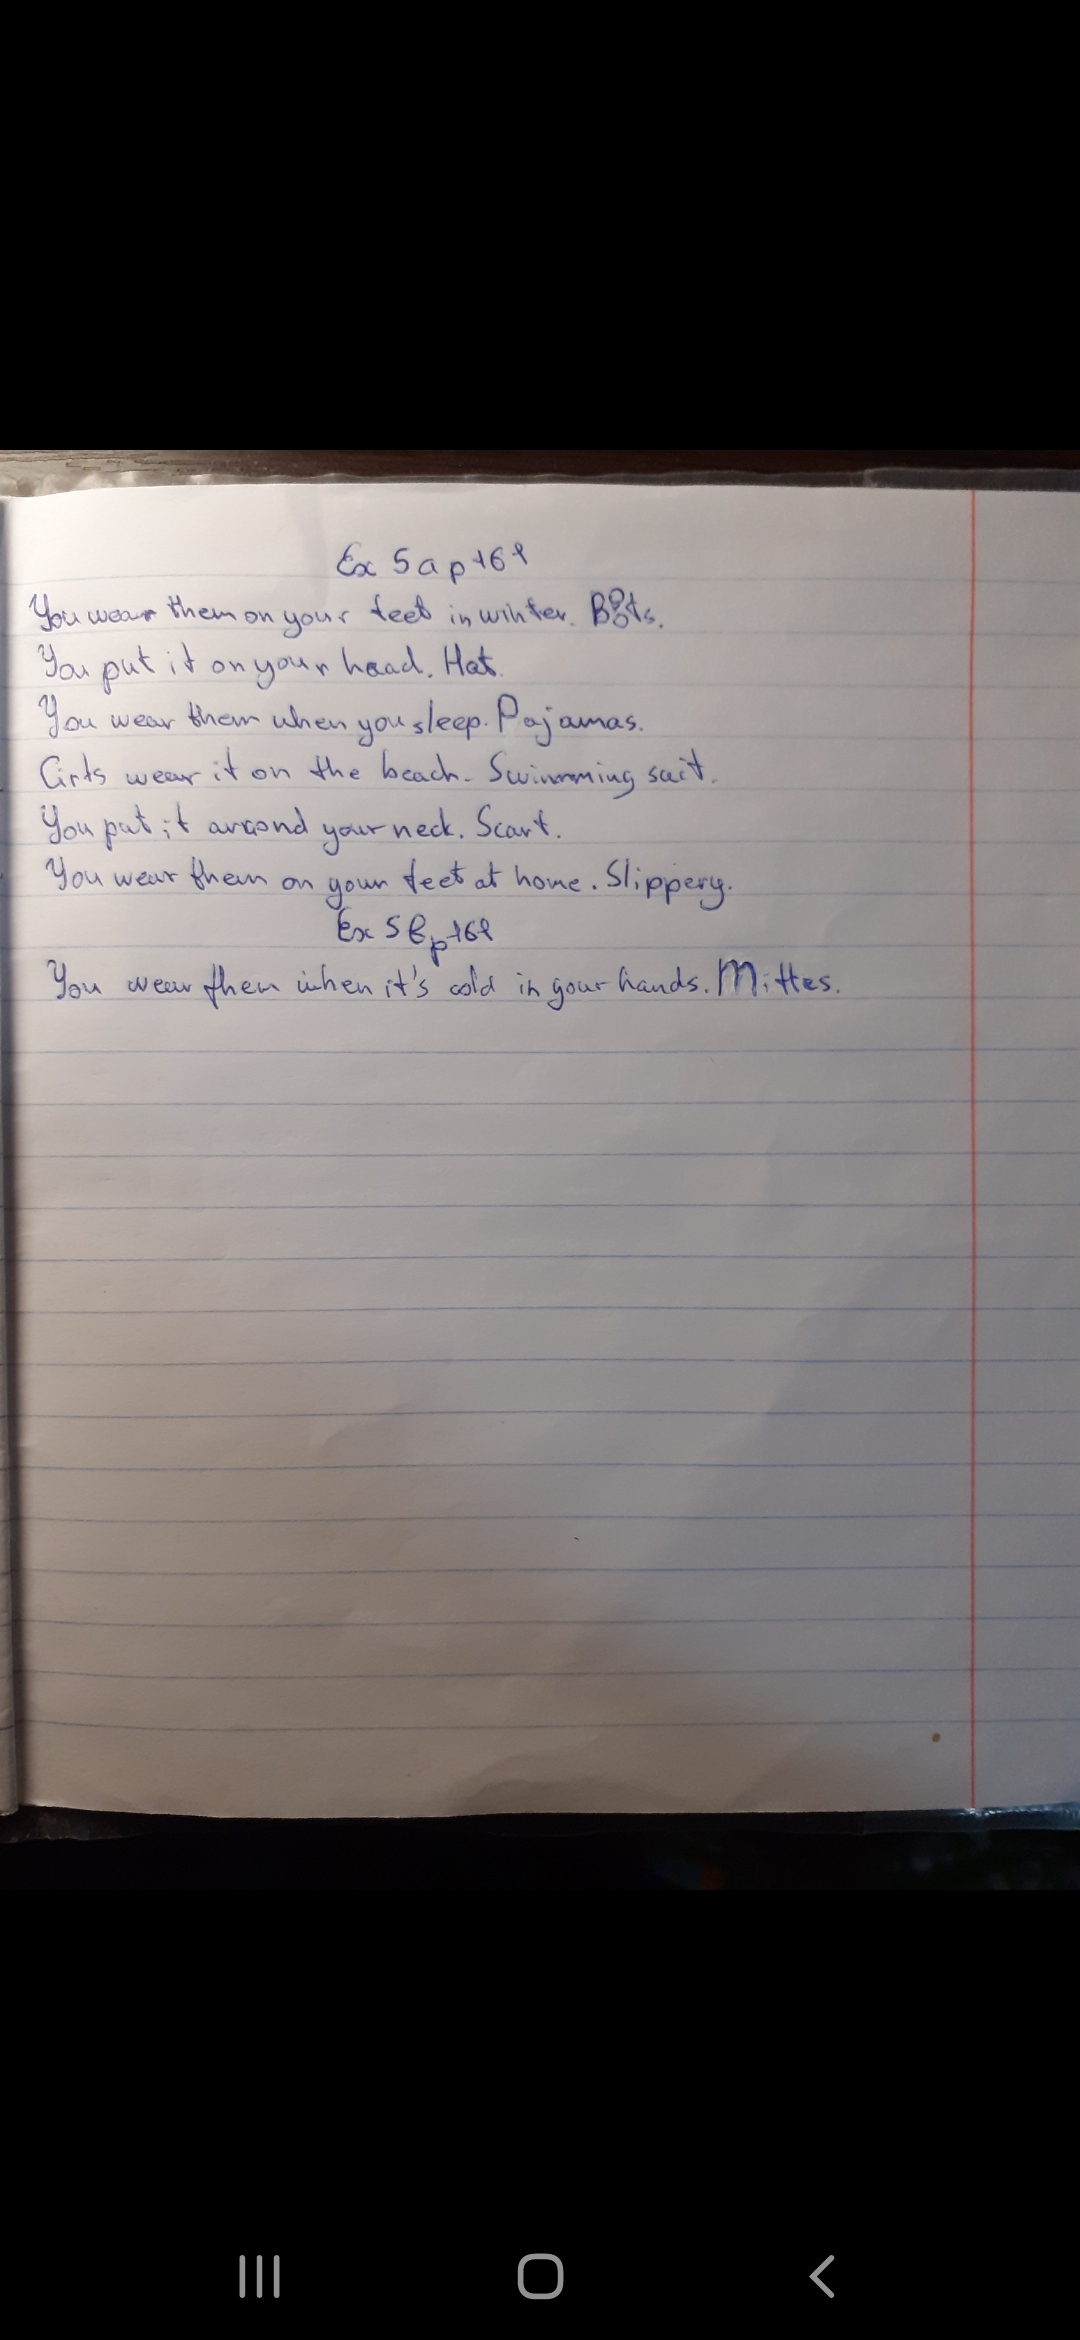 Ex 5a p 161
You wear them on your feet in winter. Boots.
You put it on your head. Hat.
You wear them when you sleep. Pajamas.
Girls wear it on the beach. Swimming suit.
You put it around your neck. Scarf.
You wear them on your feet at home. Slippery.
Ex 5 b p 161
You wear them when it's cold in your hands. Mittes.